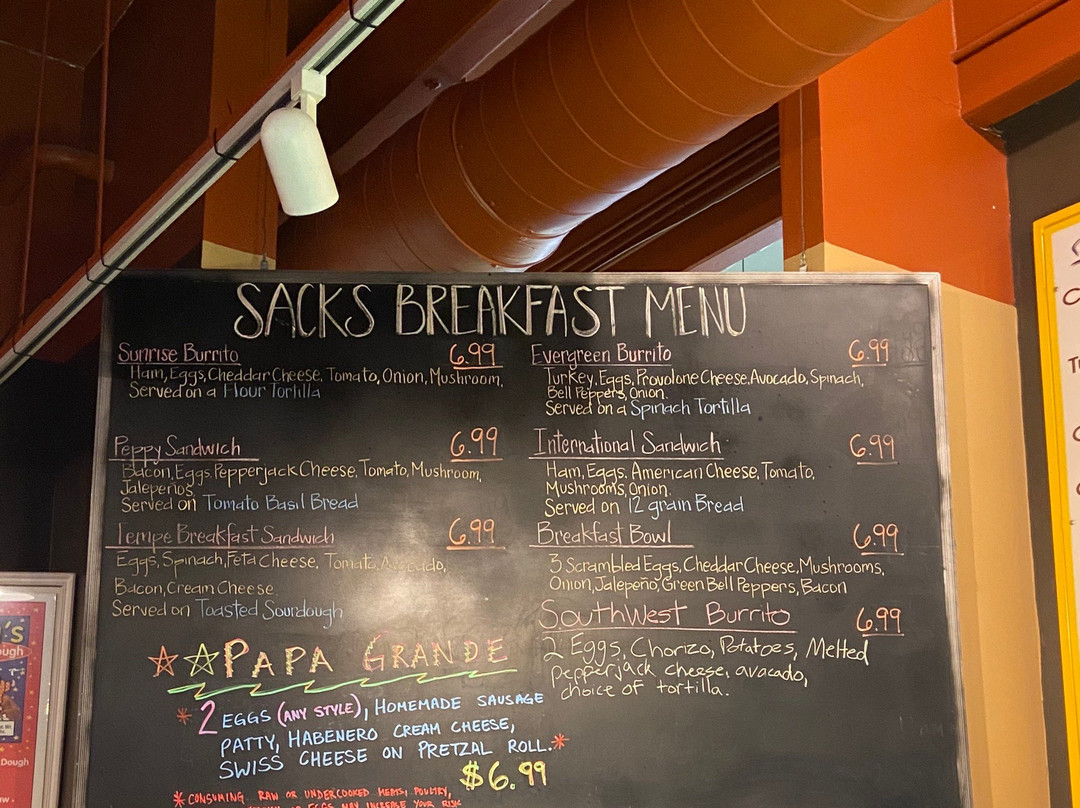 SACKS BREAKFAST MENU
Sunrise Burrito 6.99
Ham, Eggs, Cheddar Cheese, Tomato, Onion, Mushroom,
Served on a Flour Tortilla
Peppy Sandwich 6.99
Bacon, Eggs, Pepperjack Cheese, Tomato, Mushroom,
Jalepeños
Served on Tomato Basil Bread
Tempe Breakfast Sandwich 6.99
Eggs, Spinach, Feta Cheese, Tomato, Avocado,
Bacon, Cream Cheese
Served on Toasted Sourdough
PAPA GRANDE
*2 EGGS (ANY STYLE), HOMEMADE SAUSAGE
PATTY, HABENERO CREAM CHEESE,
SWISS CHEESE ON PRETZAL ROLL.*
$6.99
*CONSUMING RAW OR UNDERCOOKED MEATS, POULTRY,
OR EGGS MAY INCREASE YOUR RISK
Evergreen Burrito 6.99
Turkey, Eggs, Provolone Cheese, Avocado, Spinach,
Bell Peppers, Onion.
Served on a Spinach Tortilla
International Sandwich 6.99
Ham, Eggs, American Cheese, Tomato,
Mushrooms, Onion
Served on 12 grain Bread
Breakfast Bowl 6.99
3 Scrambled Eggs, Cheddar Cheese, Mushrooms,
Onion, Jalepeño, Green Bell Peppers, Bacon
SouthWest Burrito 6.99
2 Eggs, Chorizo, Potatoes, Melted
pepperjack cheese, avocado,
choice of tortilla.